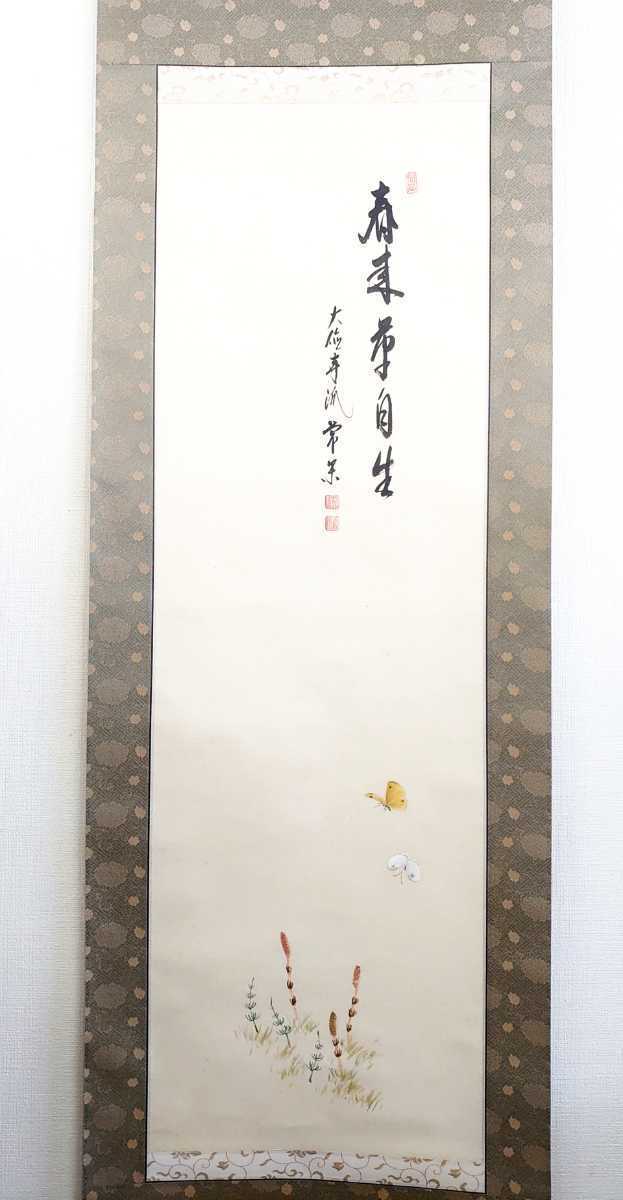 春来草自生
大徳寺派 常栄